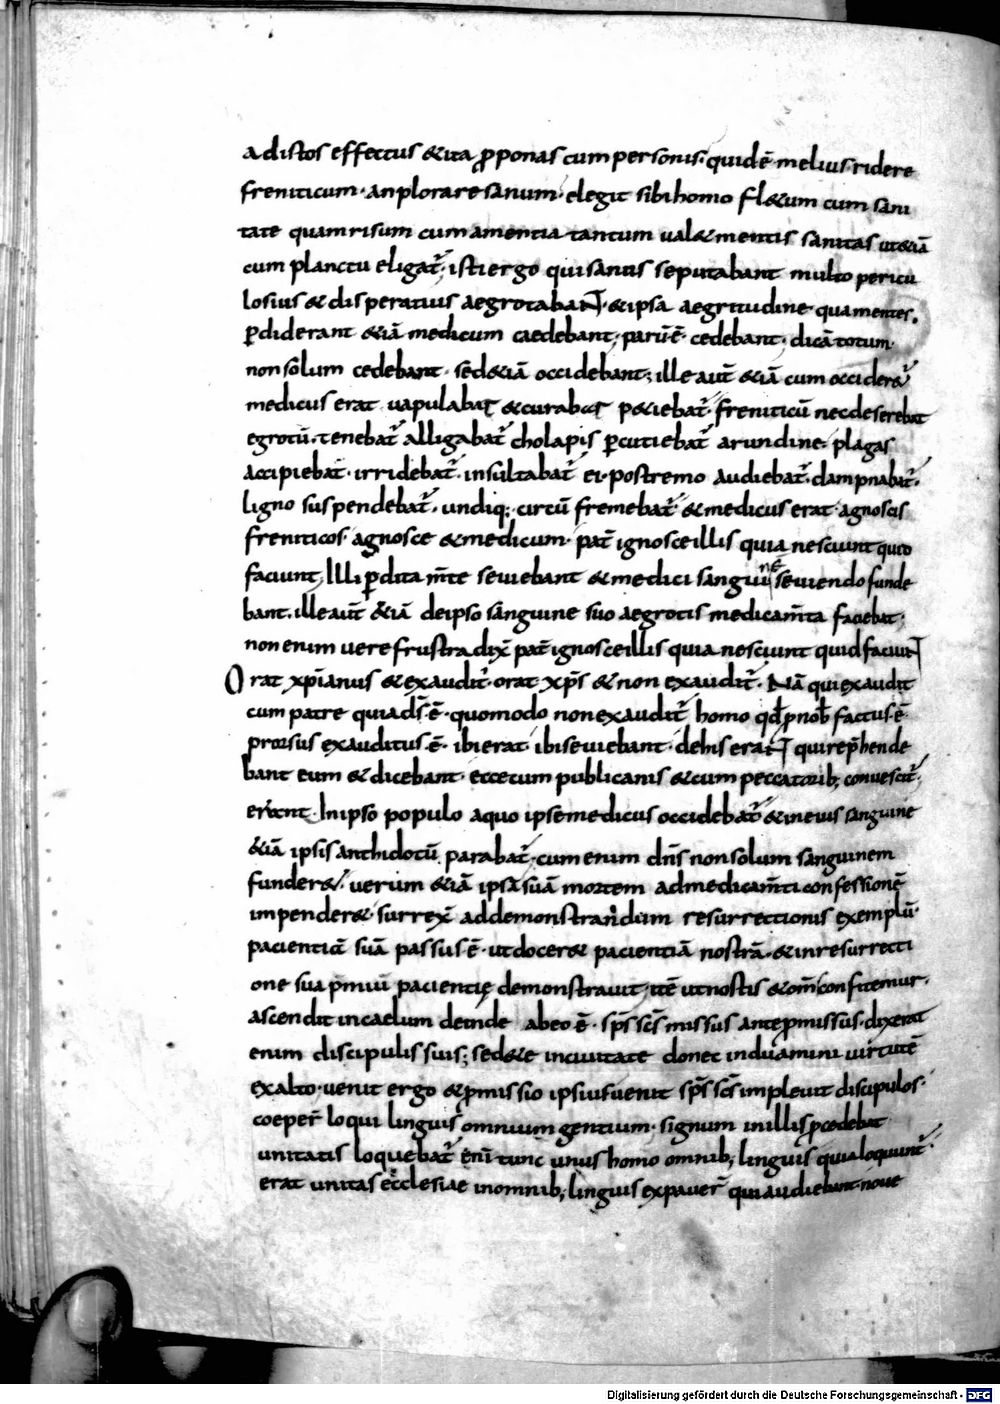 adistos effectus &ita ꝓponas cum personis· quidē· melius ridere
freniticum· an plorare sanum· elegit sibi homo fl&um cum sani
tate quam risum cum amentia tantum ual& mentis sanitas ut&iā
cum planctu eligat᷑; isti ergo qui sanus se putabant multo pericu
losius & disperatius aegrotabaNT &ipsa aegritudine· qua mentes.
ꝑdiderant &iā medicum caedebant; parū ē· cedebant· dicā totum·
non solum cedebant· sed&iā occidebant; ille aut̄ &iā cum occider&᷑
medicus erat uapulabat &curabat p&iebat᷑· freniticū nec deserebat
egrotū· tenebat᷑ alligabat᷑ cholapis ꝑcutiebat᷑ arundine· plagas
accipiebat· irridebat᷑· insultabat᷑ ei· postremo audiebat᷑· dampnabat᷑·
ligno suspendebat᷑· undiq; circū fremebat᷑ & medicus erat· agnoscis
freniticos· agnosce & medicum· pat̄ ignosce illis quia nesciunt quid
faciunt; Illi ꝑdita m̄te seuiebant & medici sanguinē seuiendo funde
bant· ille aut̄ &iā de ipso sanguine suo aegrotis medicam̄ta faciebat·
non enim uere frustra dix̄ pat̄ ignosce illis quia nesciunt quid faciuNT
Orat xp̄ianus & exaudit᷑· orat xp̄s & non exaudit᷑· Nā qui exaudit
cum patre quia d̄s ē· quomodo non exaudit᷑ homo qđ ꝓ nob̄ factus ē·
prorsus exauditus ē· ibi erat· ibi seuiebant· de his eraNT qui rep̄hende
bant eum & dicebant· ecce cum publicanis & cum peccatorib; conuescit᷑·
erant· In ipso populo a quo ipse medicus occidebat᷑ & in eius sanguine
&iā ipsis anthidotū parabat᷑· cum enim dn̄s non solum sanguinem
funder&· uerum &iā ipsā suā mortem ad medicam̄ti confessionē
impender& surrex̄ ad demonstrandum resurrectionis exemplū·
pacienticē suā passus ē· ut docer& pacientiā nostrā· & in resurrecti
one sua p̄miū pacientię demonstrauit; itē ut nostis & om̄ confitemur·
ascendit in caelum deinde abeo ē· sp̄s sc̄s missus ante ꝓmissus· dixerat
enim discipulis suis; sed&e in ciuitate donec induamini uirtutē
ex alto· uenit ergo & ꝓmissio ipsius uenit sp̄s sc̄s impleuit discipulos·
coeper̄ loqui linguis omnium gentium· signum in illis ꝓcedebat
unitatis loquebat᷑ eni᷑ tunc unus homo omnib; linguis quia loquunt᷑·
erat unitas ecclesiae in omnib; linguis expauer̄ qui audiebant· noue
Digitalisierung gefördert durch die Deutsche Forschungsgemeinschaft - DFG